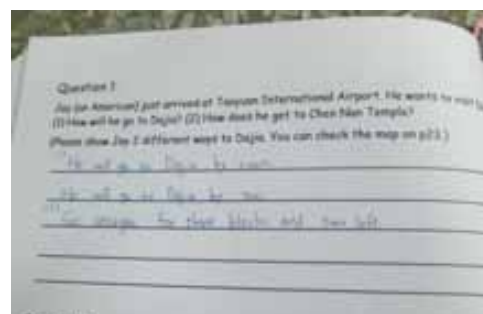 Question 1
Jay (an American) just arrived at Taoyuan International Airport. He wants to visit
(1) How will he go to Dajia? (2) How does he get to Chen Nan Temple?
(Please show Jay 2 different ways to Dajia. You can check the map on p23.)
He will go to Dajia by
He will go to Dajia by
Go straight for three blocks and turn left